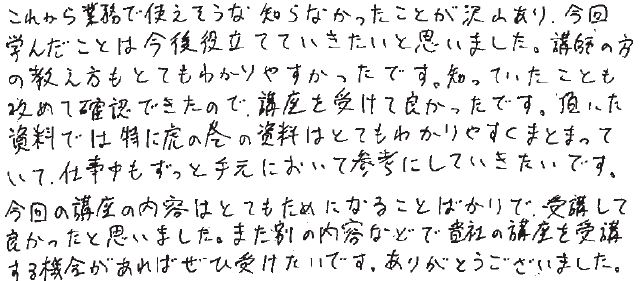 これから業務で使えそうな知らなかったことが沢山あり、今回
学んだことは今後役立てていきたいと思いました。講師の方
の教え方もとてもわかりやすかったです。知っていたことも
改めて確認できたので、講座を受けて良かったです。頂いた
資料では特に虎の巻の資料はとてもわかりやすくまとまって
いて、仕事中もずっと手元において参考にしていきたいです。
今回の講座の内容はとてもためになることばかりで、受講して
良かったと思いました。また別の内容などで貴社の講座を受講
する機会があればぜひ受けたいです。ありがとうございました。